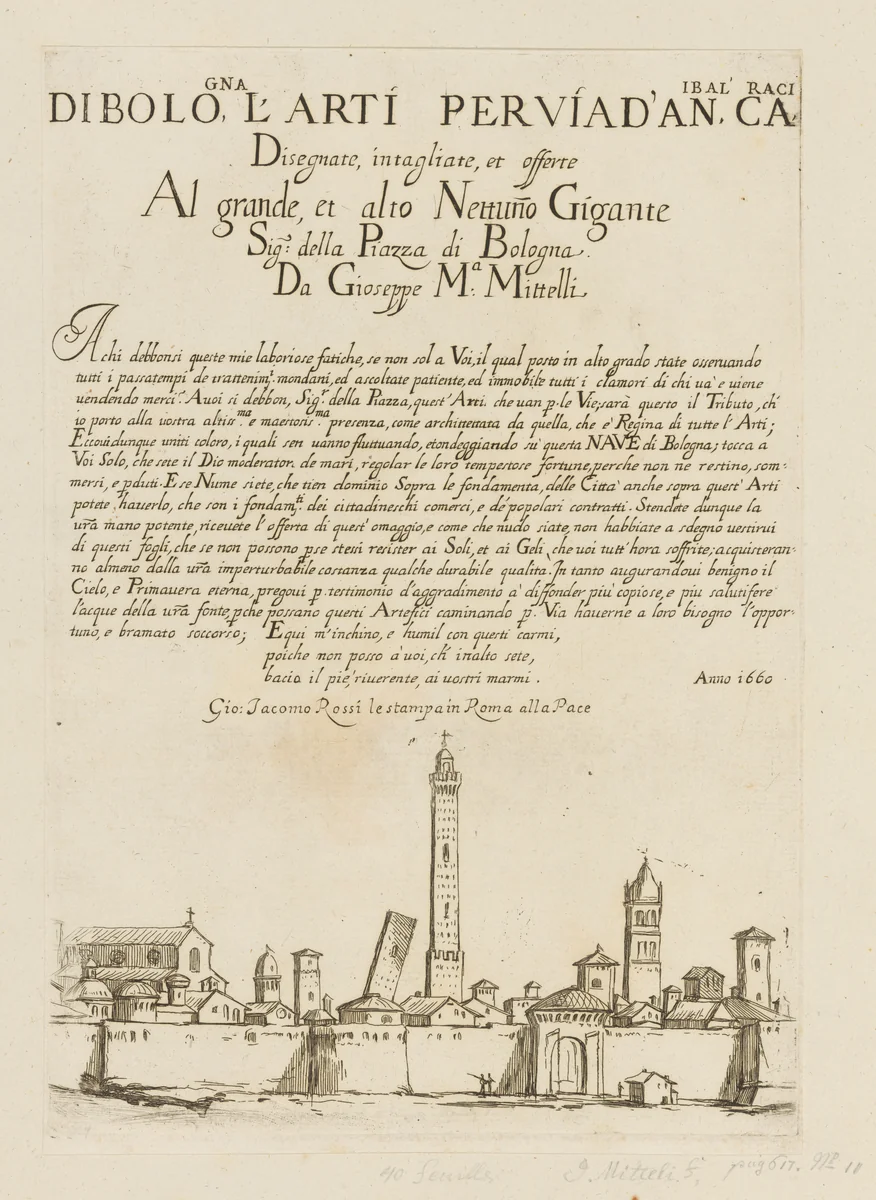 DI BOLOGNA, L'ARTI PER VÍA D'ANIBAL' CARACI
Disegnate, intagliate, et offerte
Al grande, et alto Nettuño Gigante
Sigr. della Piazza di Bologna.
Da Gioseppe Ma. Mittelli
A chi debbonsi queste mie laboriose fatiche, se non sol a Voi, il qual posto in alto grado state osseruando
tutti i passatempi de trattenimti. mondani, ed ascoltate patiente, ed immobile tutti i clamori di chi uà e uiene
uendendo merci? A uoi si debbon, Sigr. della Piazza, quest'Arti. che uan p. le Vie; sarà questo il Tributo, ch'
io porto alla uostra altissma. e maestosisma. presenza, come architettata da quella, che è Regina di tutte l'Arti;
Eccoui dunque uniti coloro, i quali sen uanno fluttuando, et ondeggiando sù questa NAVE di Bologna; tocca a
Voi Solo, che sete il Dio moderator. de mari, regolar le loro tempestose fortune, perche non ne restino, som-
mersi, e pduti. E se Nume siete, che tien dominio Sopra le fondamenta, delle Città anche sopra quest'Arti
potete, hauerlo, che son i fondamti. dei cittadineschi comerci, e de' popolari contratti. Stendete dunque la
ura mano potente, riceuete l'offerta di quest'omaggio, e come che nudo siate, non habbiate a sdegno uestirui
di questi fogli, che se non possono pse stessi resister ai Soli, et ai Geli, che uoi tutt'hora soffrite; acquisteran-
no almeno dalla ura imperturbabile costanza qualche durabile qualita. In tanto augurandoui benigno il
Cielo, e Primauera eterna, pregoui p. testimonio d'aggradimento à diffonder più copiose, e più salutifere
l'acque della ura fonte, pche possano questi Artefici caminando p. Via hauerne a loro bisogno l'oppor-
tuno, e bramato soccorso; E qui m'inchino, e humil con questi carmi,
poiche non posso à uoi, ch' in alto sete,
bacio il piè, riuerente, ai uostri marmi.
Anno 1660
Gio: Iacomo Rossi le stampa in Roma alla Pace
40 feuilles
J. Mitteli f.
pag 617. No 11